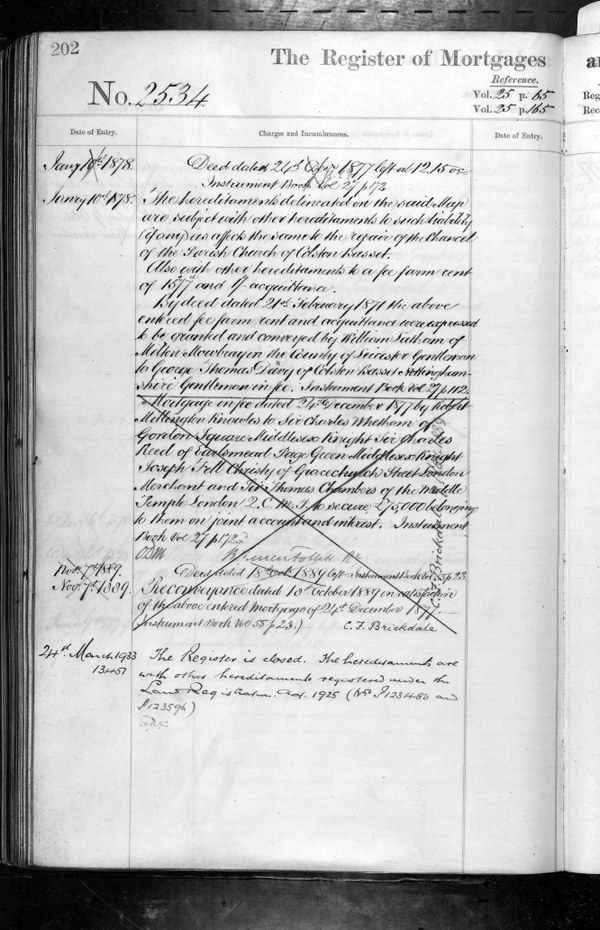 202
The Register of Mortgages
Reference.
No. 2534
Vol. 25 p. 65
Vol. 25 p. 165
Date of Entry.
Charges and Incumbrances.
Date of Entry.
Jany 10th 1878.
Deed dated 24th 1877 left at 12.15
Instrument Book Vol 27 p 172
Janry 10th 1878.
The hereditaments delineated on the said Map
are subject with other hereditaments to such liability
(if any) as affects the same to the repair of the Chancel
of the Parish Church of Colston Basset.
Also with other hereditaments to a fee farm rent
of and acquittance.
By deed dated 21st February 1871 the above
entered fee farm rent and acquittance were expressed
to be granted and conveyed by William Latham of
Melton Mowbray in the County of Leicester Gentleman
to George Thomas Davy of Colston Basset Nottingham-
shire Gentleman in fee. Instrument Book Vol 27 p 112.
Mortgage in fee dated 24th December 1877 by Robert
Millington Knowles to Sir Charles Whetham of
Gordon Square Middlesex Knight Sir Charles
Reed of Earlsmead Page Green Middlesex Knight
Joseph Fell Christy of Gracechurch Street London
Merchant and Sir Thomas Chambers of the Middle
Temple London Q.C. M.P. to secure £75,000 belonging
to them on joint account and interest. Instrument
Book Vol 27 p 172.
Novr. 7th 1889.
Deed dated 18th Octr. 1889 left Instrument Book Vol 55 p 23
Novr. 7th 1889.
Reconveyance dated 18th October 1889 on satisfaction
of the above entered mortgage of 24th December 1877
(Instrument Book Vol 55 p 23.) C. F. Brickdale
C. F. Brickdale
24th March 1933
13457
The Register is closed. The hereditaments are
with other hereditaments registered under the
Land Registration Act. 1925 (Nos P123480 and
P123596)